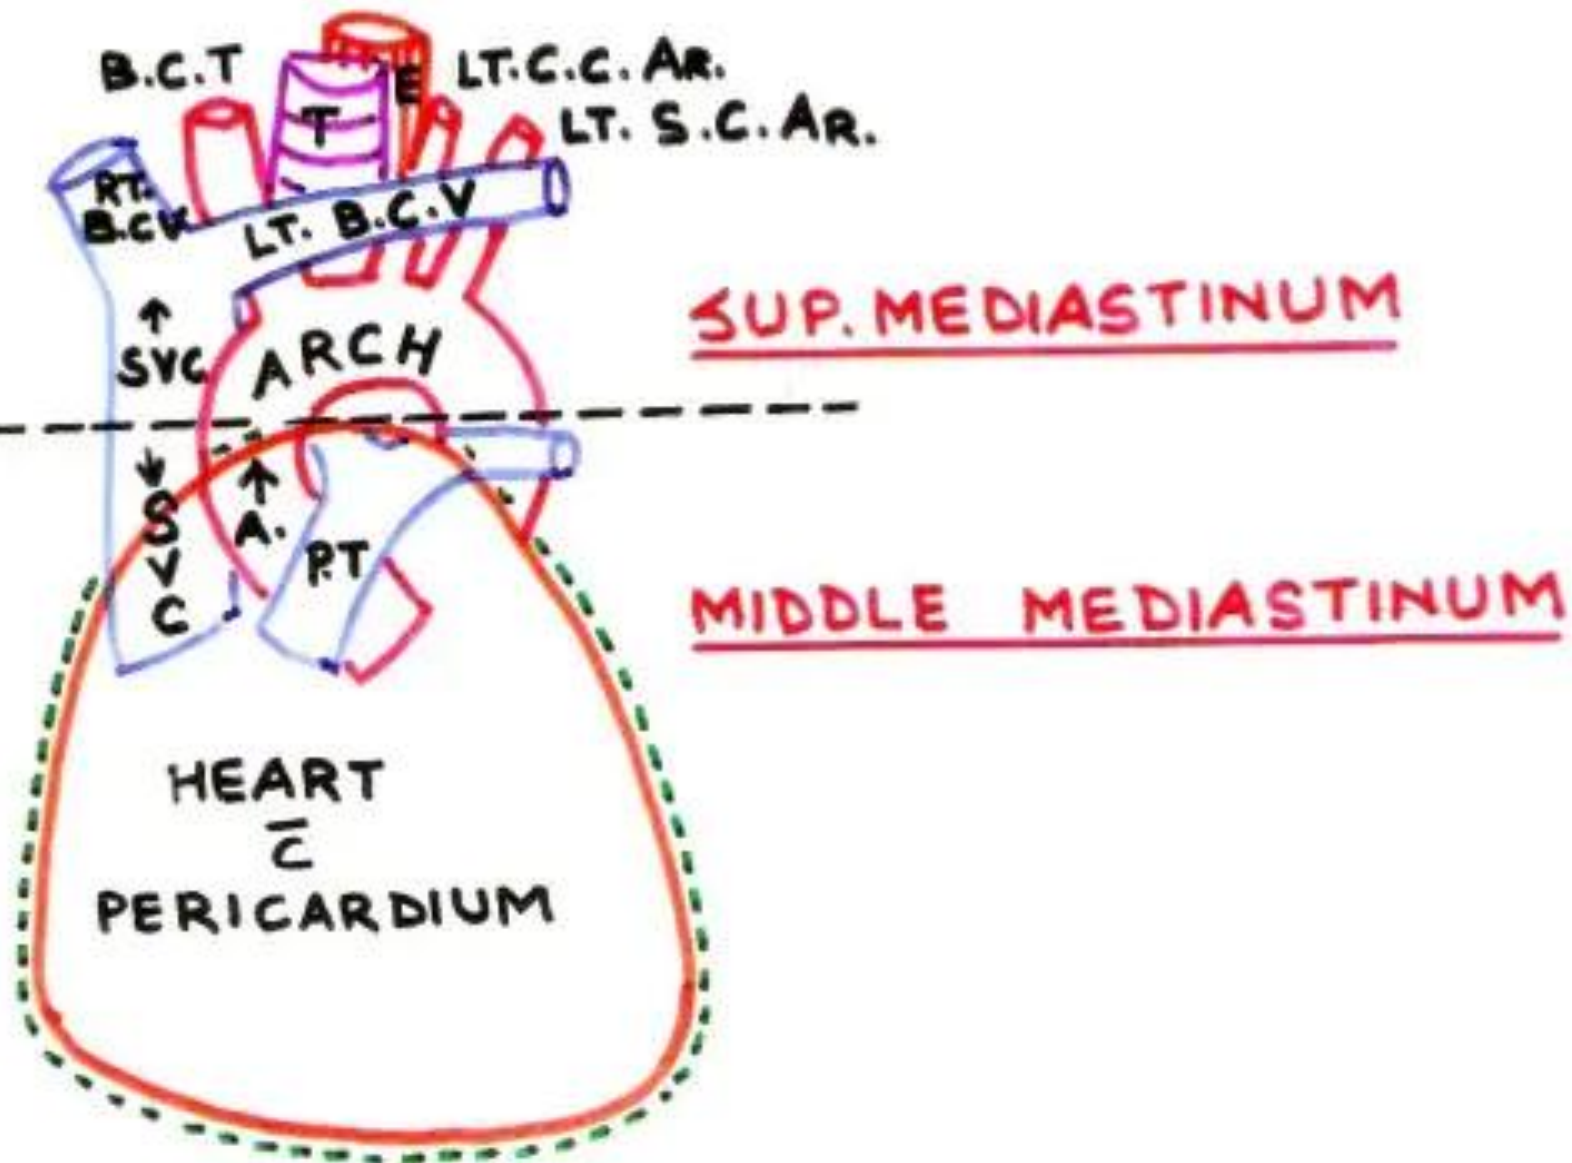 B.C.T
T
E
LT.C.C. AR.
LT. S.C. AR.
RT.
B.CV
LT. B.C.V
SUP. MEDIASTINUM
↑
SVC
ARCH
↓
S
V
C
↑
A.
P.T
MIDDLE MEDIASTINUM
HEART
C̄
PERICARDIUM